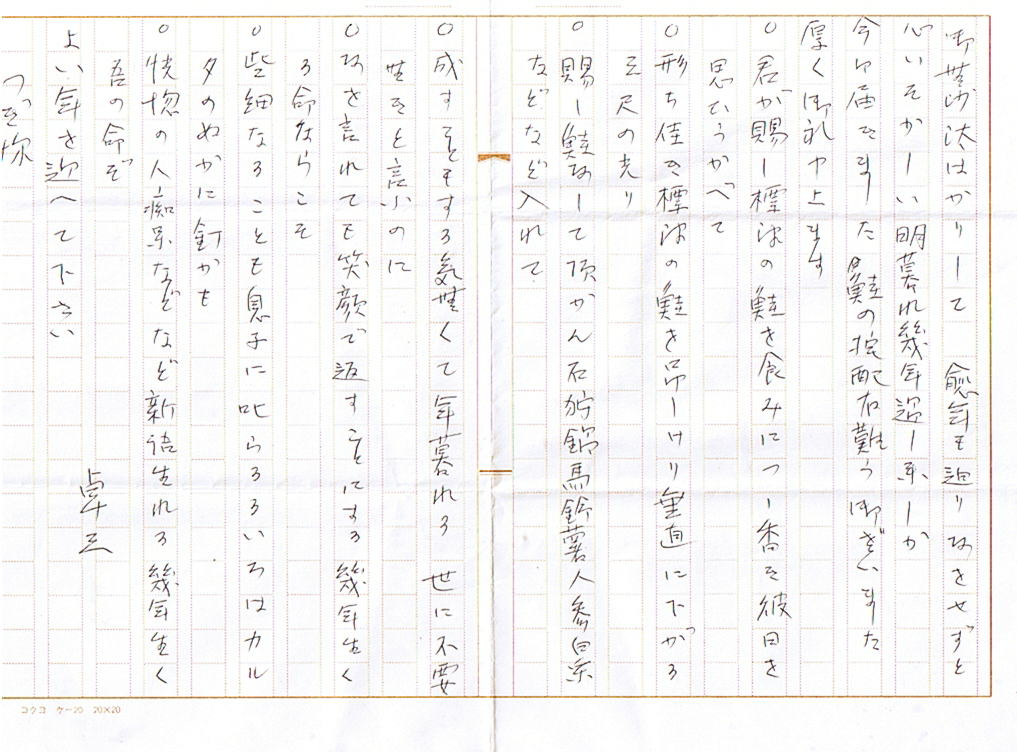 御無沙汰ばかりして 愈年も迫りなをせずと
心いそがしい明暮れ幾年過し来しか
今日届きました 鮭の宅配有難うございました
厚く御礼申上ます
○ 君が賜し標津の鮭を食みにつゝ香き彼日を
思ひうかべて
○ 形ち佳き標津の鮭を吊しけり垂直に下がる
三尺の光り
○ 賜し鮭なして頂かん石狩鍋馬鈴薯人参白菜
などなど入れて
○ 成すことする気無くて年暮れる 世に不要
無きと言ふのに
○ 何を言れても笑顔で返すことにする幾年生く
る命ならこそ
○ 些細なることも息子に叱らるるいろはカル
タのぬかに釘かも
○ 恍惚の人痴呆などなど新語生れる幾年生く
吾の命ぞ
よい年を迎へて下さい
卓三
つき子様
コクヨ ケー20 20×20